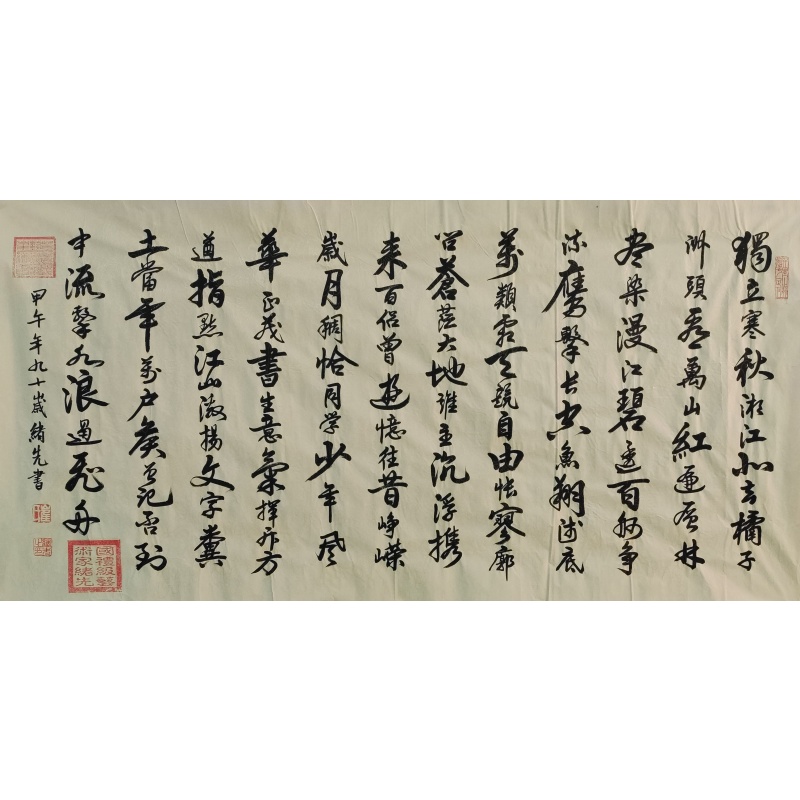 獨立寒秋湘江北去橘子
洲頭看萬山紅遍層林
尽染漫江碧透百舸争
流鷹擊長空魚翔淺底
萬類霜天競自由悵寥廓
問蒼茫大地誰主沉浮携
来百侶曾遊憶往昔崢嶸
歲月稠恰同学少年風
華正茂書生意氣揮斥方
遒指點江山激揚文字糞
土當年萬户侯曾記否到
中流擊水浪遏飛舟
甲午年九十歲緒先書
國禮級藝術家緒先